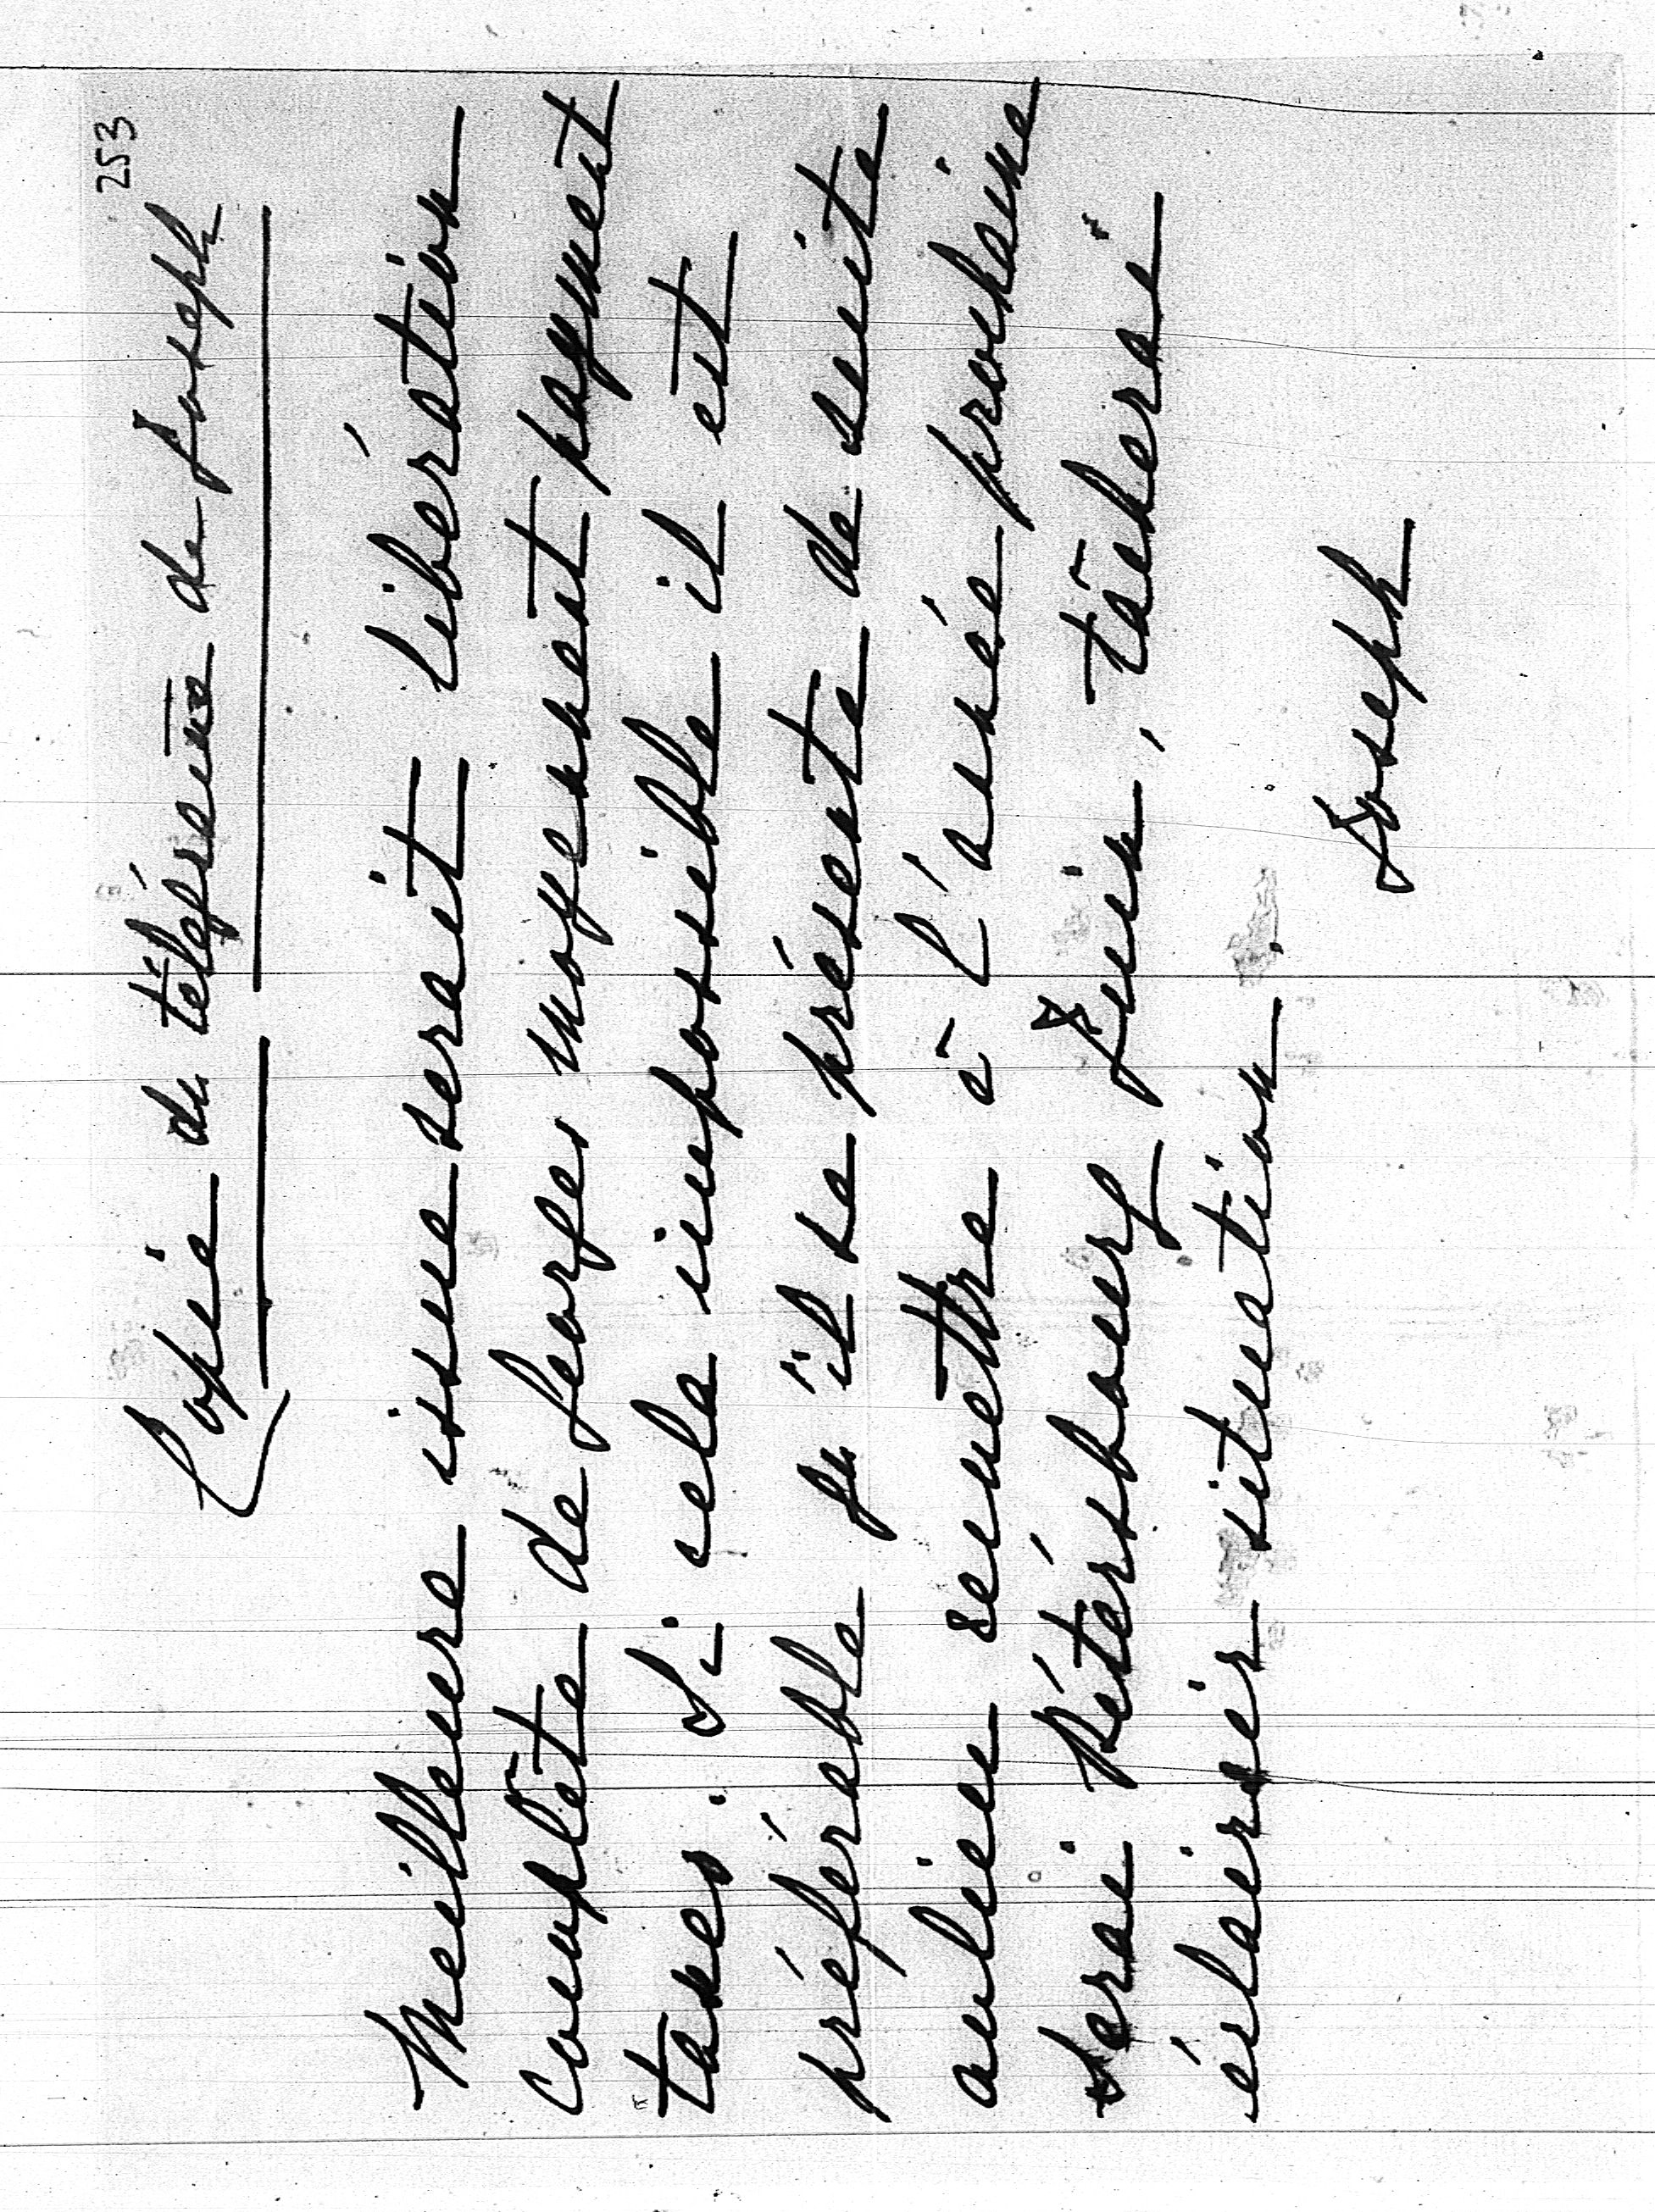 253
Copie du télégramme de Joseph
Meilleure issue serait libération
complète de Georges moyennant payment
taxes. Si cela impossible il est
préférable qu'il se présente de suite
aulieu remettre à l'année prochaine
serai Pétérsbourg Juin, tâcherai
éclaircir situation.
Joseph